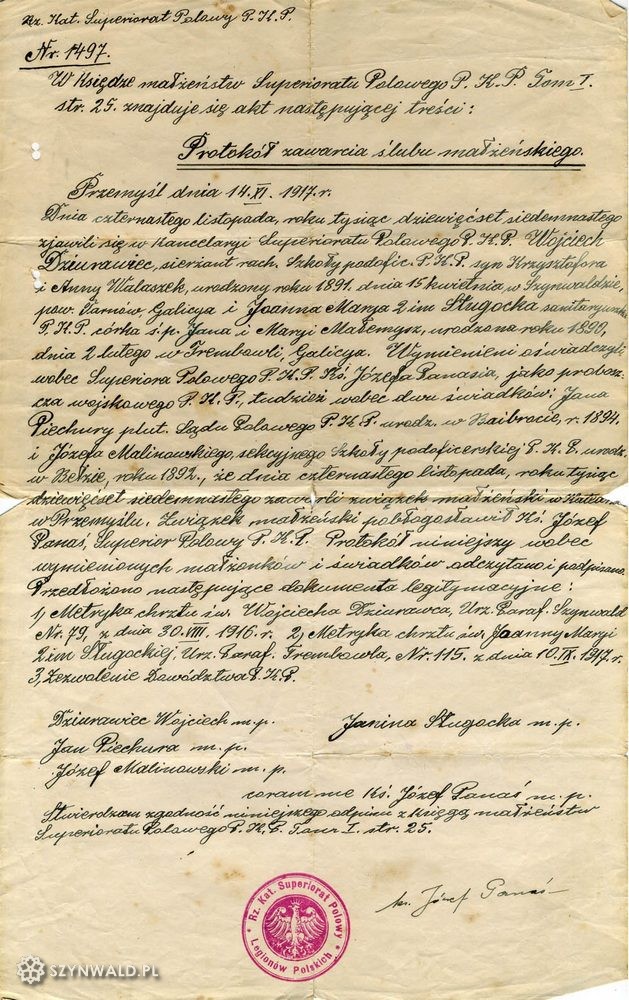 Rz. Kat. Superiorat Polowy P.K.P.
Nr. 1497.
W Księdze małżeństw Superioratu Polowego P. K. P. Tom I.
str. 25. znajduje się akt następującej treści:
Protokół zawarcia ślubu małżeńskiego.
Przemyśl dnia 14.XI. 1917.r.
Dnia czternastego listopada, roku tysiąc dziewięćset siedemnastego
zjawili się w Kancelaryi Superioratu Polowego P. K.P. Wojciech
Dziurawiec, sierżant rach. Szkoły podofic. P.K.P. syn Krzysztofora
i Anny Walaszek, urodzony roku 1891. dnia 15 kwietnia w Szynwałdzie,
pow. Tarnów, Galicya i Joanna Marya 2 im Sługocka sanitaryuszka
P.K.P. córka ś.p. Jana i Maryi Małemysz, urodzona roku 1899,
dnia 2 lutego w Trembowli, Galicya. Wymienieni oświadczyli
wobec Superiora Polowego P.K.P. Ks. Józefa Panasia, jako probosz-
cza wojskowego P. K. P., tudzież wobec dwu świadków: Jana
Piechury plut. Sądu Polowego P. K. P. urodz. w r. 1894.
i Józefa Malinowskiego, sekcyjnego Szkoły podoficerskiej P. K. P. urodz.
w Bełzie, roku 1892., że dnia czternastego listopada, roku tysiąc
dziewięćset siedemnastego zawarli związek małżeński w
w Przemyślu. Związek małżeński pobłogosławił Ks. Józef
Panaś, Superior Polowy P. K. P. Protokół niniejszy wobec
wymienionych małżonków i świadków odczytano i podpisano.
Przedłożono następujące dokumenta legitymacyjne:
1, Metryka chrztu św. Wojciecha Dziurawca, Urz. Paraf. Szynwałd
Nr. 79, z dnia 30.VIII. 1916.r. 2, Metryka chrztu św. Joanny Maryi
2 im Sługockiej, Urz. Paraf. Trembowla, Nr. 115. z dnia 10.IX. 1917.r.
3, Zezwolenie Dowództwa P. K. P.
Dziurawiec Wojciech m.p. Janina Sługocka m.p.
Jan Piechura m.p.
Józef Malinowski m.p.
coram me Ks. Józef Panaś m.p.
Stwierdzam zgodność niniejszego odpisu z księgą małżeństw
Superioratu Polowego P. K. P. Tom I. str. 25.
Rz. Kat. Superiorat Polowy
Legionów Polskich
ks. Józef Panaś
SZYNWALD.PL